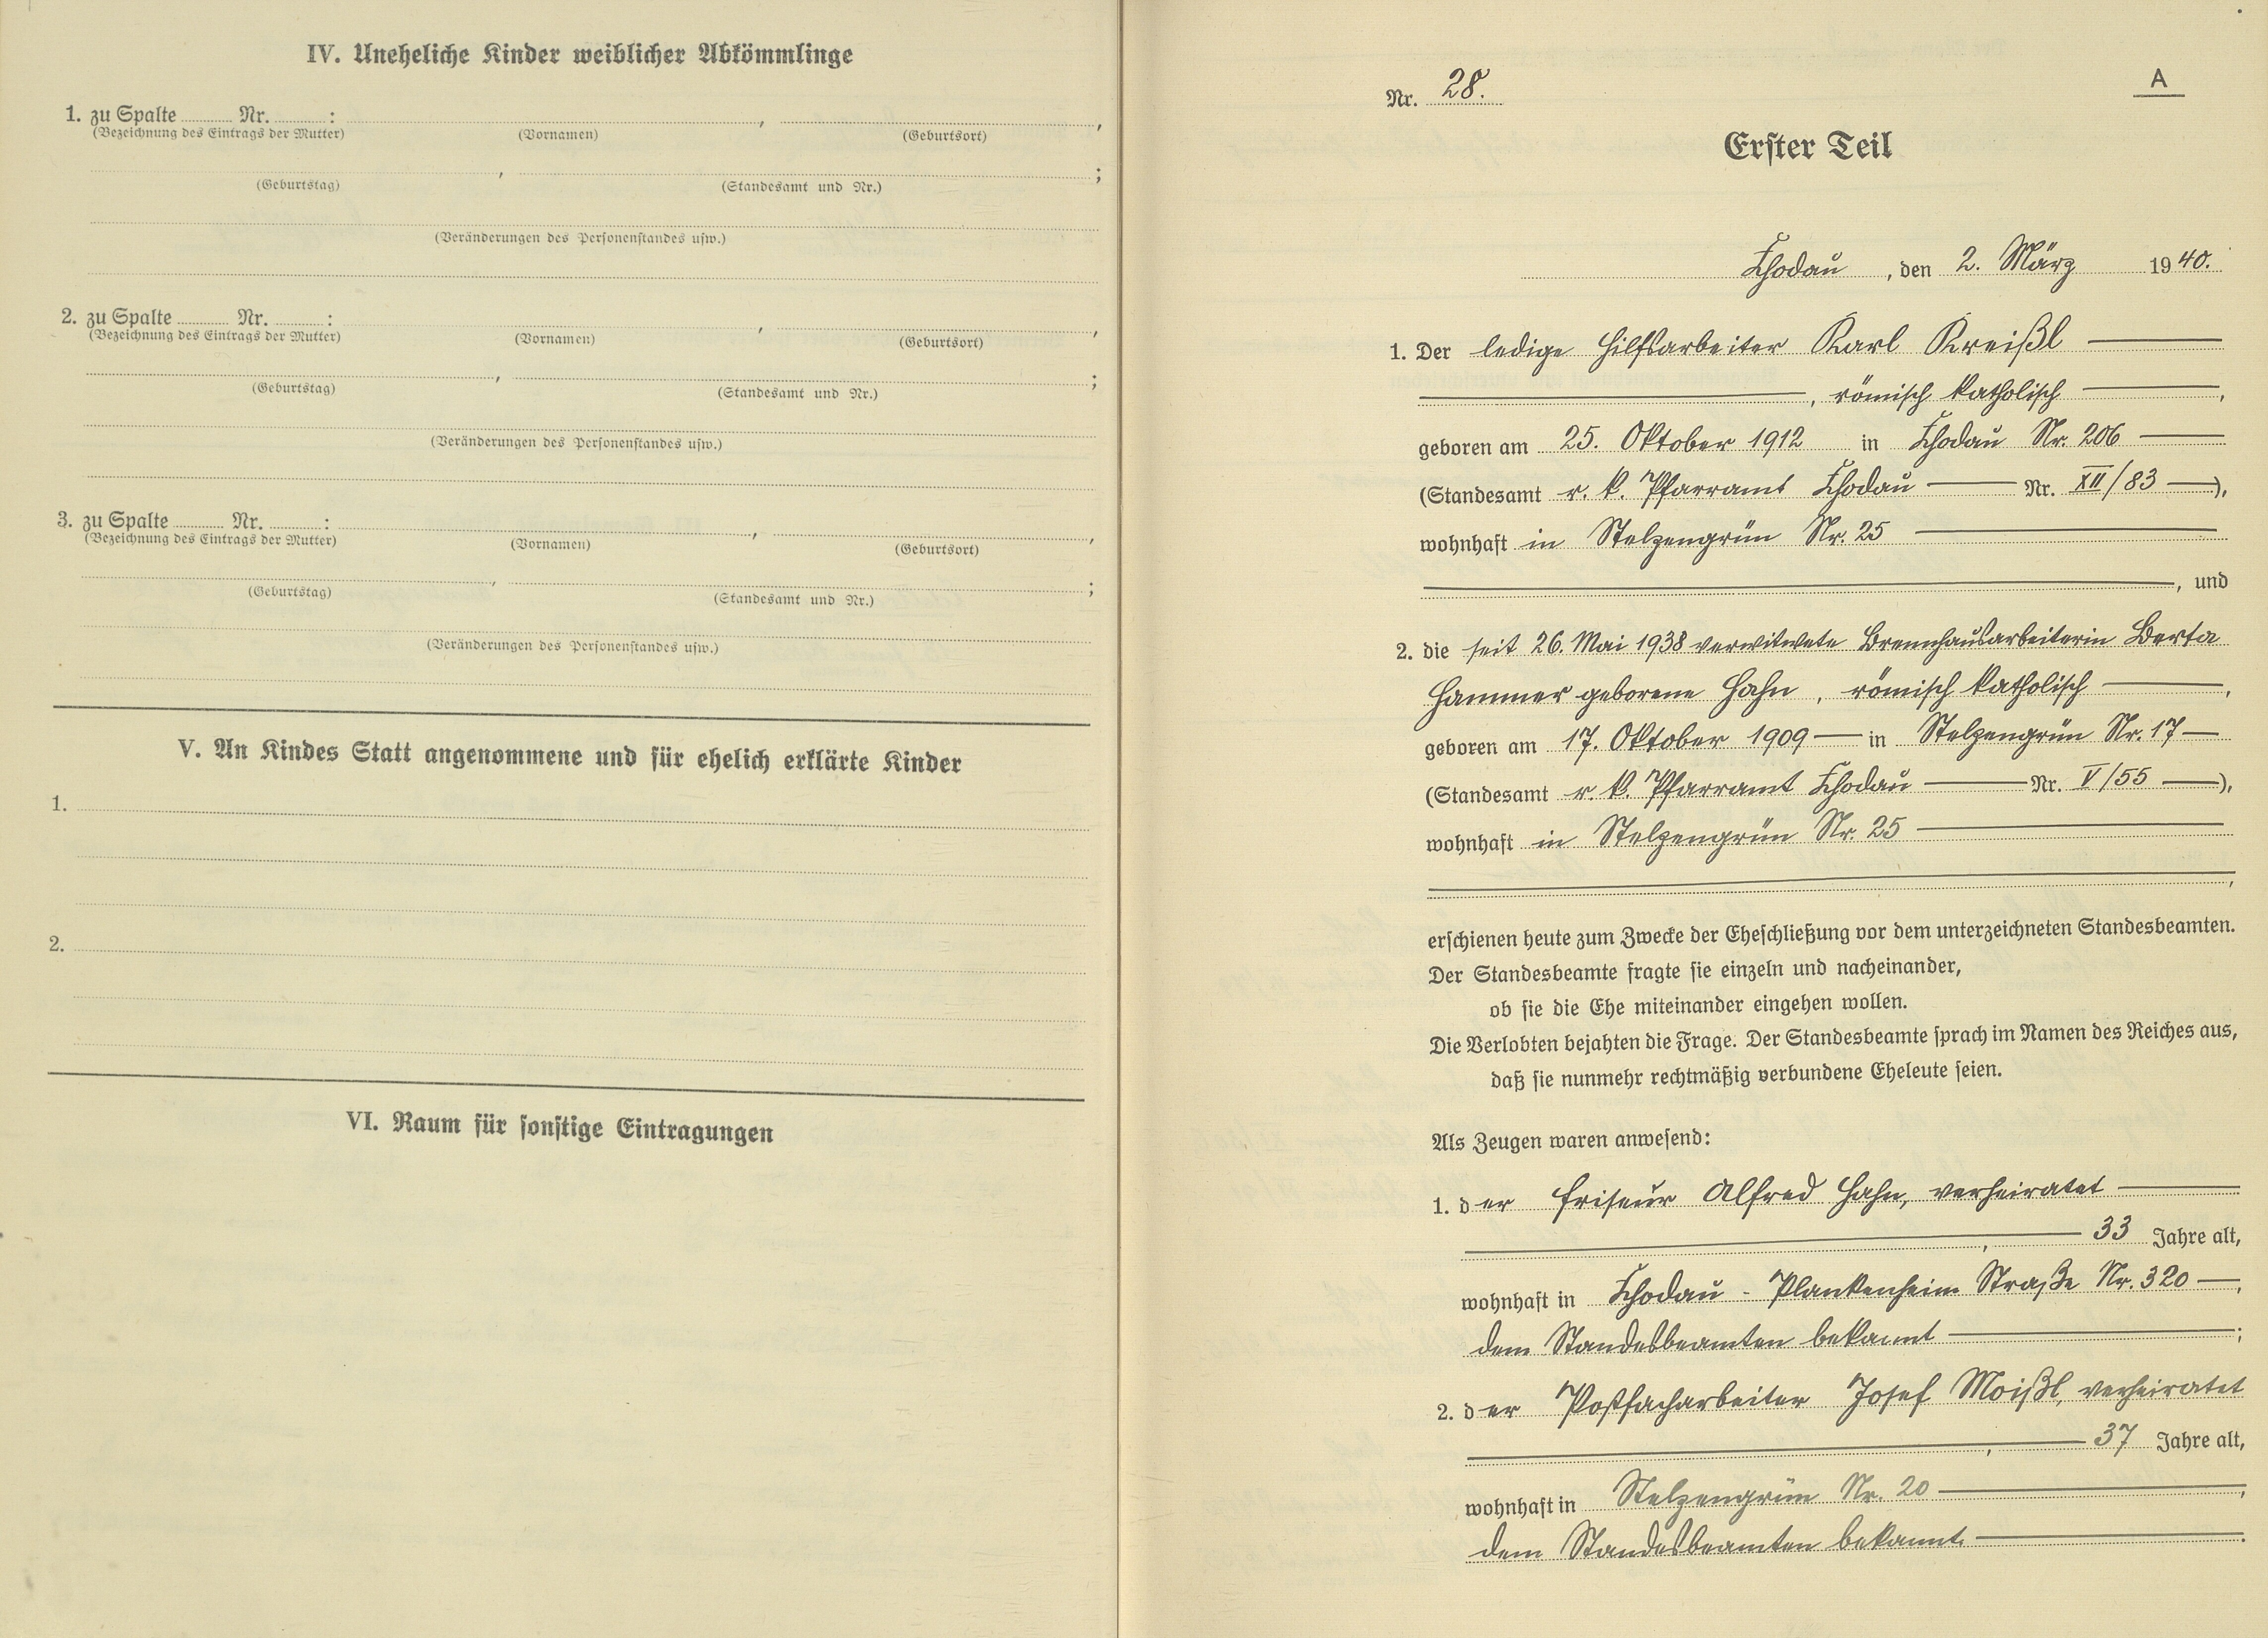 IV. Uneheliche Kinder weiblicher Abkömmlinge
1. zu Spalte ........ Nr. ........ : , ,
(Bezeichnung des Eintrags der Mutter) (Vornamen) (Geburtsort)
, ;
(Geburtstag) (Standesamt und Nr.)
(Veränderungen des Personenstandes usw.)
2. zu Spalte ........ Nr. ........ : , ,
(Bezeichnung des Eintrags der Mutter) (Vornamen) (Geburtsort)
, ;
(Geburtstag) (Standesamt und Nr.)
(Veränderungen des Personenstandes usw.)
3. zu Spalte ........ Nr. ........ : , ,
(Bezeichnung des Eintrags der Mutter) (Vornamen) (Geburtsort)
, ;
(Geburtstag) (Standesamt und Nr.)
(Veränderungen des Personenstandes usw.)
V. An Kindes Statt angenommene und für ehelich erklärte Kinder
1.
2.
VI. Raum für sonstige Eintragungen
A
Nr. 28.
Erster Teil
Chodau, den 2. März 1940.
1. Der ledige Hilfsarbeiter Karl Kreißl
, römisch katholisch ,
geboren am 25. Oktober 1912 in Chodau Nr. 206
(Standesamt r. k. Pfarramt Chodau Nr. XII/83 ),
wohnhaft in Stelzengrün Nr. 25
, und
2. die seit 26. Mai 1938 verwitwete Brennhausarbeiterin Berta
Hammer geborene Hahn, römisch katholisch ,
geboren am 17. Oktober 1909 in Stelzengrün Nr. 17
(Standesamt r. k. Pfarramt Chodau Nr. V/55 ),
wohnhaft in Stelzengrün Nr. 25
,
erschienen heute zum Zwecke der Eheschließung vor dem unterzeichneten Standesbeamten.
Der Standesbeamte fragte sie einzeln und nacheinander,
ob sie die Ehe miteinander eingehen wollen.
Die Verlobten bejahten die Frage. Der Standesbeamte sprach im Namen des Reiches aus,
daß sie nunmehr rechtmäßig verbundene Eheleute seien.
Als Zeugen waren anwesend:
1. der Friseur Alfred Hahn, verheiratet
, 33 Jahre alt,
wohnhaft in Chodau - Plankenheim Straße Nr. 320 ,
dem Standesbeamten bekannt ;
2. der Postfacharbeiter Josef Moißl, verheiratet
, 37 Jahre alt,
wohnhaft in Stelzengrün Nr. 20 ,
dem Standesbeamten bekannt. .